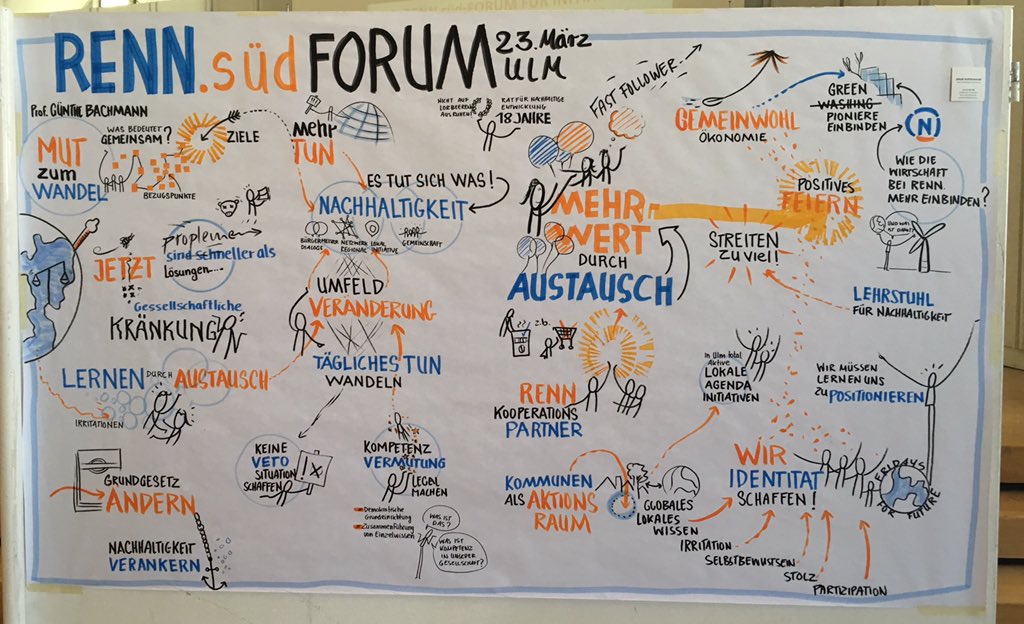 RENN.süd FORUM 23. März
ULM
Prof. GÜNTHE BACHMANN
MUT
zum
WANDEL
WAS BEDEUTET
GEMEINSAM?
BEZUGSPUNKTE
ZIELE
mehr
TUN
NICHT AUF
LORBEEREN
AUSRUHEN!
RAT FÜR NACHHALTIGE
ENTWICKLUNG
18 JAHRE
ES TUT SICH WAS!
NACHHALTIGKEIT
BÜRGERMEISTER
DIALOGE
NETZWERK
REGIONAL
LOKAL
INITIATIVE
GEMEINSCHAFT
JETZT
proplemen
sind schneller als
Lösungen...
Gessellschaftliche
KRÄNKUNG
UMFELD
VERÄNDERUNG
LERNEN DURCH AUSTAUSCH
IRRITATIONEN
TÄGLICHES TUN
WANDELN
GRUNDGESETZ
ÄNDERN
NACHHALTIGKEIT
VERANKERN
KEINE
VETO
SITUATION
SCHAFFEN!
!x
KOMPETENZ
VERMUTUNG
LEGAL
MACHEN
Demokratische
Grundeinrichtung
Zusammenführung
von Einzelwissen
WAS IST
DAS?
WAS IST
KOMPETENZ
IN UNSERER
GESELLSCHAFT?
FAST FOLLOWER
MEHR
WERT
DURCH
AUSTAUSCH
z.b.
RENN
KOOPERATIONS
PARTNER
KOMMUNEN
ALS AKTIONS
RAUM
GLOBALES
LOKALES
WISSEN
GEMEINWOHL
ÖKONOMIE
GREEN
WASHING
PIONIERE
EINBINDEN
N
WIE DIE
WIRTSCHAFT
BEI RENN.
MEHR EINBINDEN?
POSITIVES
FEIERN
STREITEN
ZU VIEL!
LEHRSTUHL
FÜR NACHHALTIGKEIT
In Ulm total
Aktive
LOKALE
AGENDA
INITIATIVEN
WIR MÜSSEN
LERNEN UNS
ZU POSITIONIEREN
WIR
IDENTITÄT
SCHAFFEN!
FRIDAYS
FOR FUTURE
IRRITATION
SELBSTBEWUSTSEIN
STOLZ
PARTIZIPATION